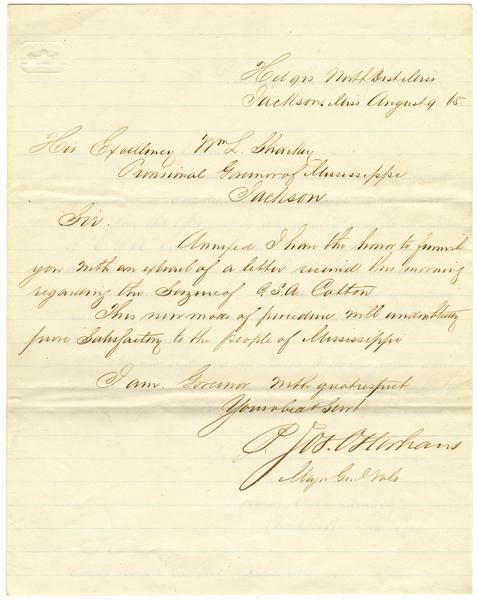 Hd qrs North Dist Miss
Jackson Miss August 9. 65
His Excellency Wm L. Sharkey
Provisional Governor of Mississippi
Jackson
Sir.
Annexed I have the honor to furnish
you with an extract of a letter received this morning
regarding the Seizure of C.S.A. Cotton
This new mode of procedure will undoubtedly
prove Satisfactory to the people of Mississippi
I am Governor with great respect
Your obedt Servt
P. Jos. Osterhaus
Major Genl Vols